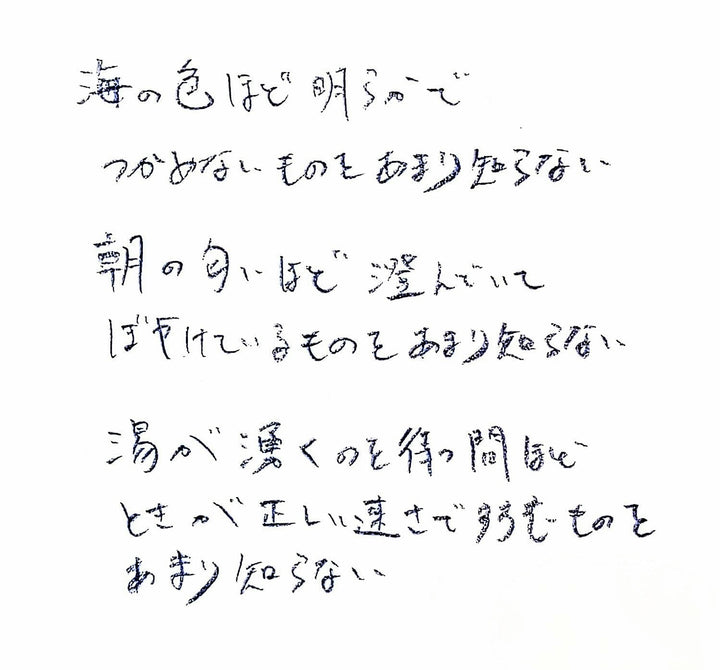 海の色ほど明らかで
つかめないものをあまり知らない
朝の匂いほど澄んでいて
ぼやけているものをあまり知らない
湯が湧くのを待つ間ほど
ときが正しい速さで歩むものを
あまり知らない